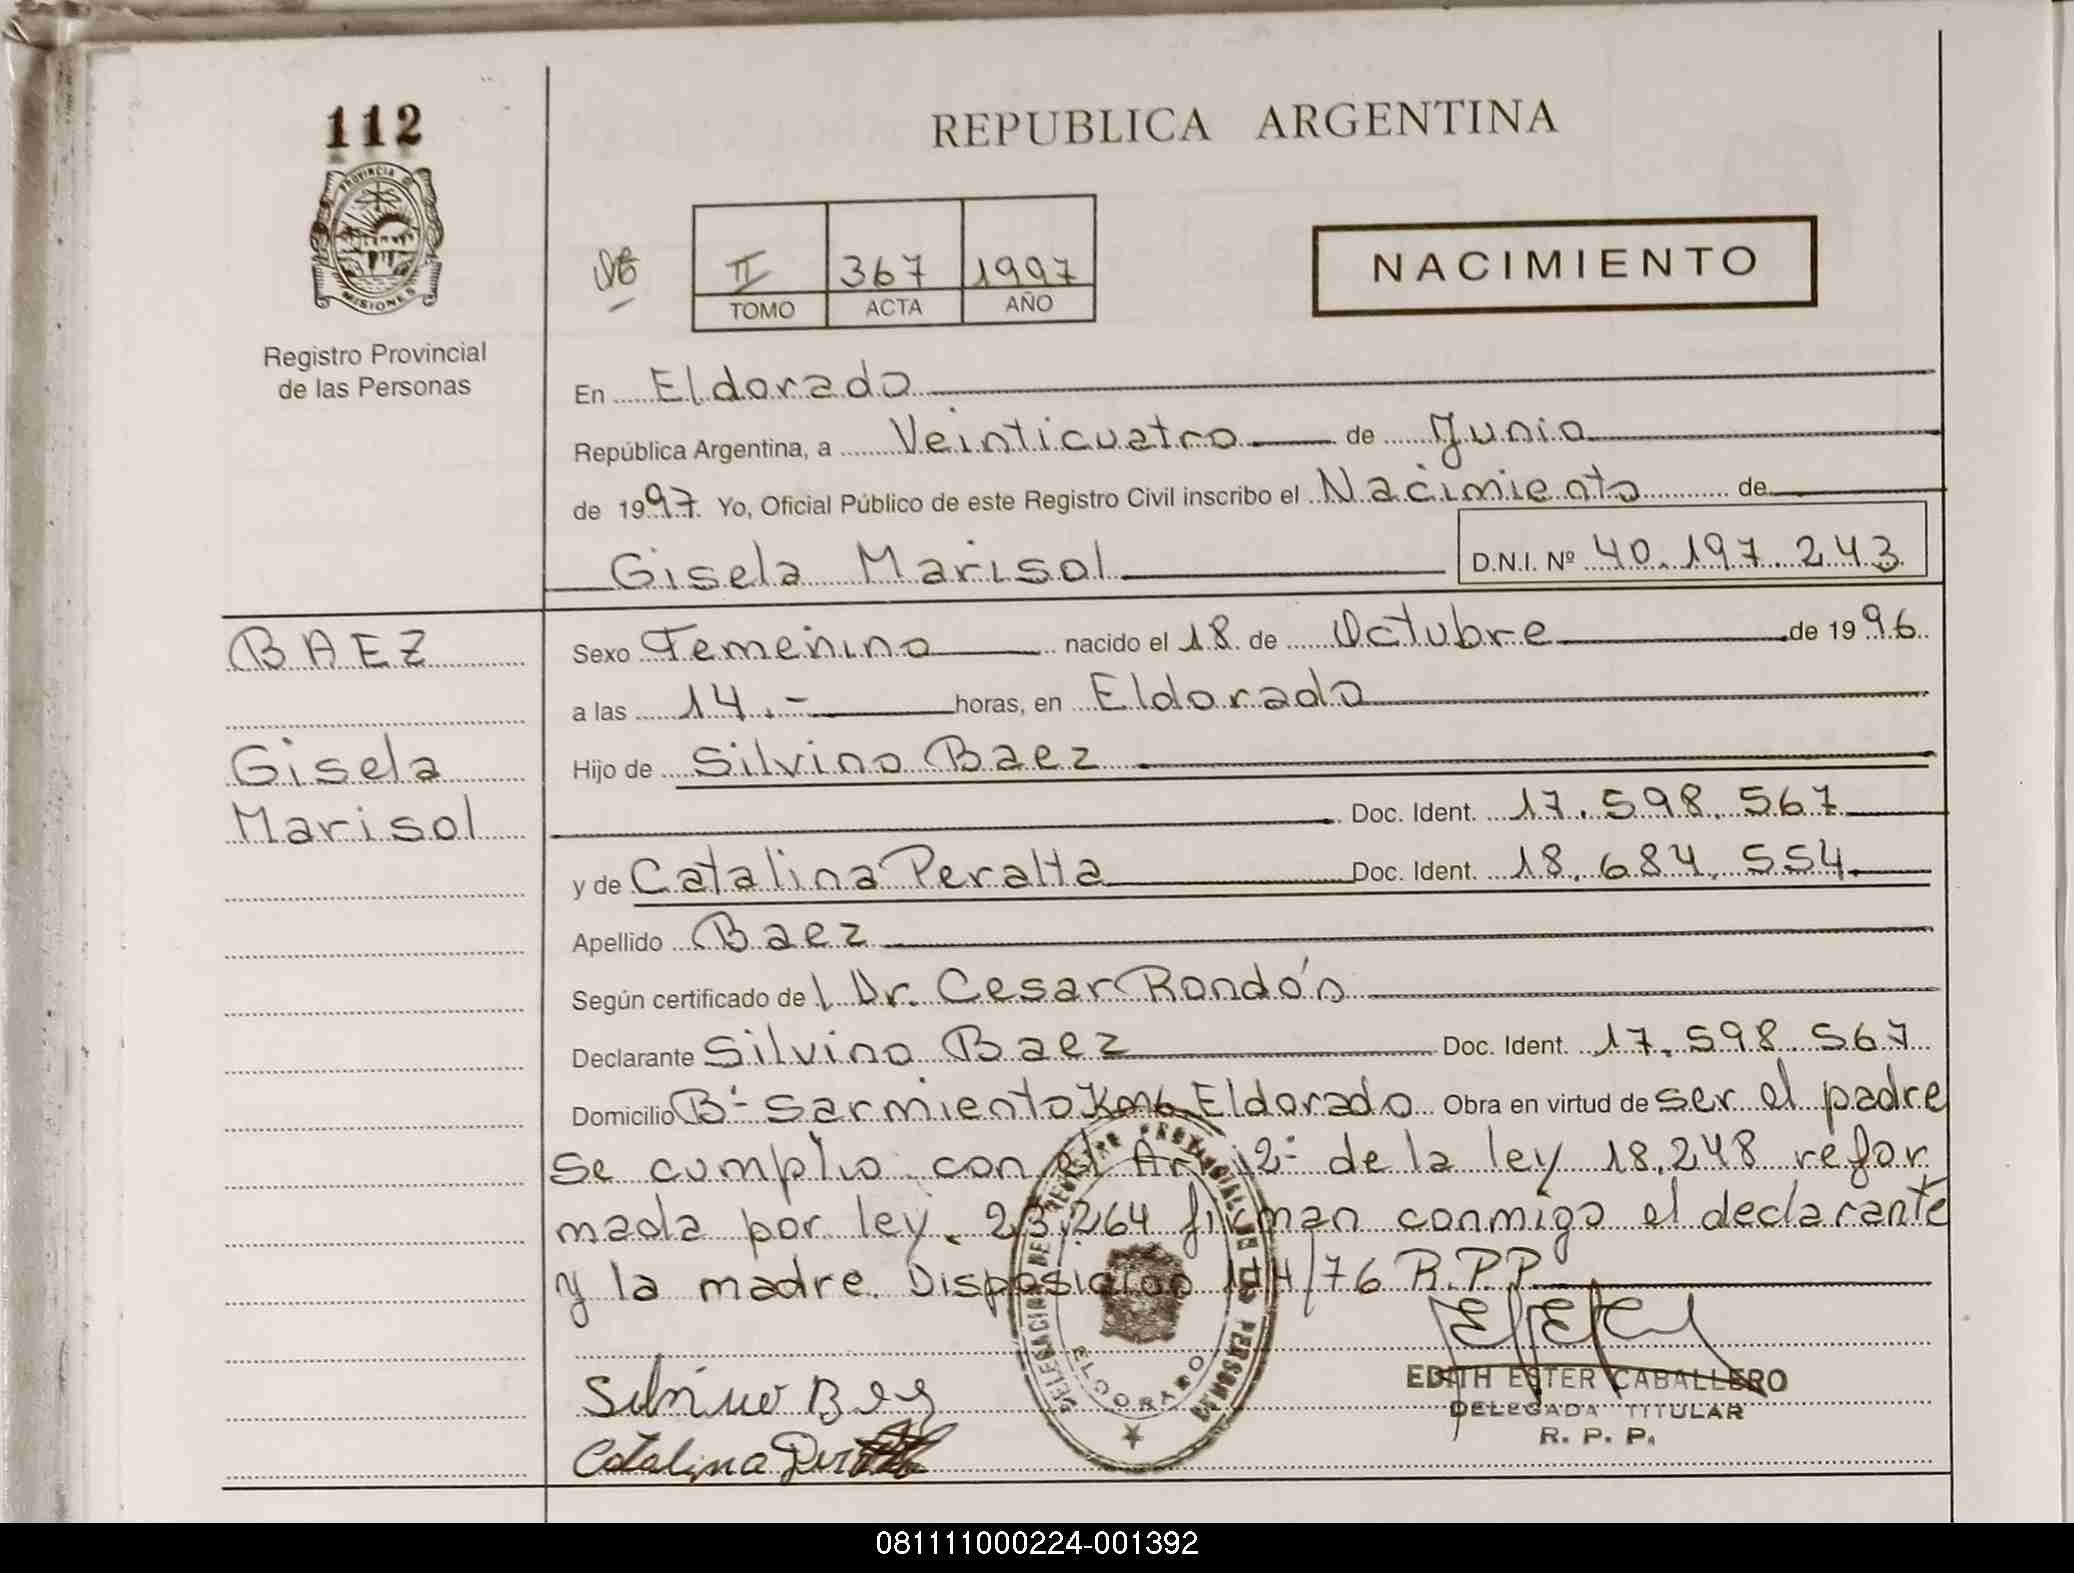 112
PROVINCIA DE
MISIONES
Registro Provincial
de las Personas
REPUBLICA ARGENTINA
II 367 1997
TOMO ACTA AÑO
NACIMIENTO
En Eldorado
República Argentina, a Veinticuatro de Junio
de 1997. Yo, Oficial Público de este Registro Civil inscribo el Nacimiento de
Gisela Marisol D.N.I. Nº 40.197.243
BAEZ
Gisela
Marisol
Sexo Femenino nacido el 18 de Octubre de 1996
a las 14.- horas, en Eldorado
Hijo de Silvino Baez
Doc. Ident. 17.598.567
y de Catalina Peralta Doc. Ident. 18.684.554
Apellido Baez
Según certificado de l Dr. Cesar Rondón
Declarante Silvino Baez Doc. Ident. 17.598.567
Domicilio Bº Sarmiento Km6 Eldorado Obra en virtud de ser el padre
Se cumplio con el Art 12º de la ley 18.248 refor
mada por ley. 23.264 firman conmigo el declarante
y la madre. Disposicion 174/76 R.P.P.
Silvino Baez
Catalina
DELEGACION DEL REGISTRO PROVINCIAL DE LAS PERSONAS
ELDORADO
EDITH ESTER CABALLERO
DELEGADA TITULAR
R. P. P.
081111000224-001392